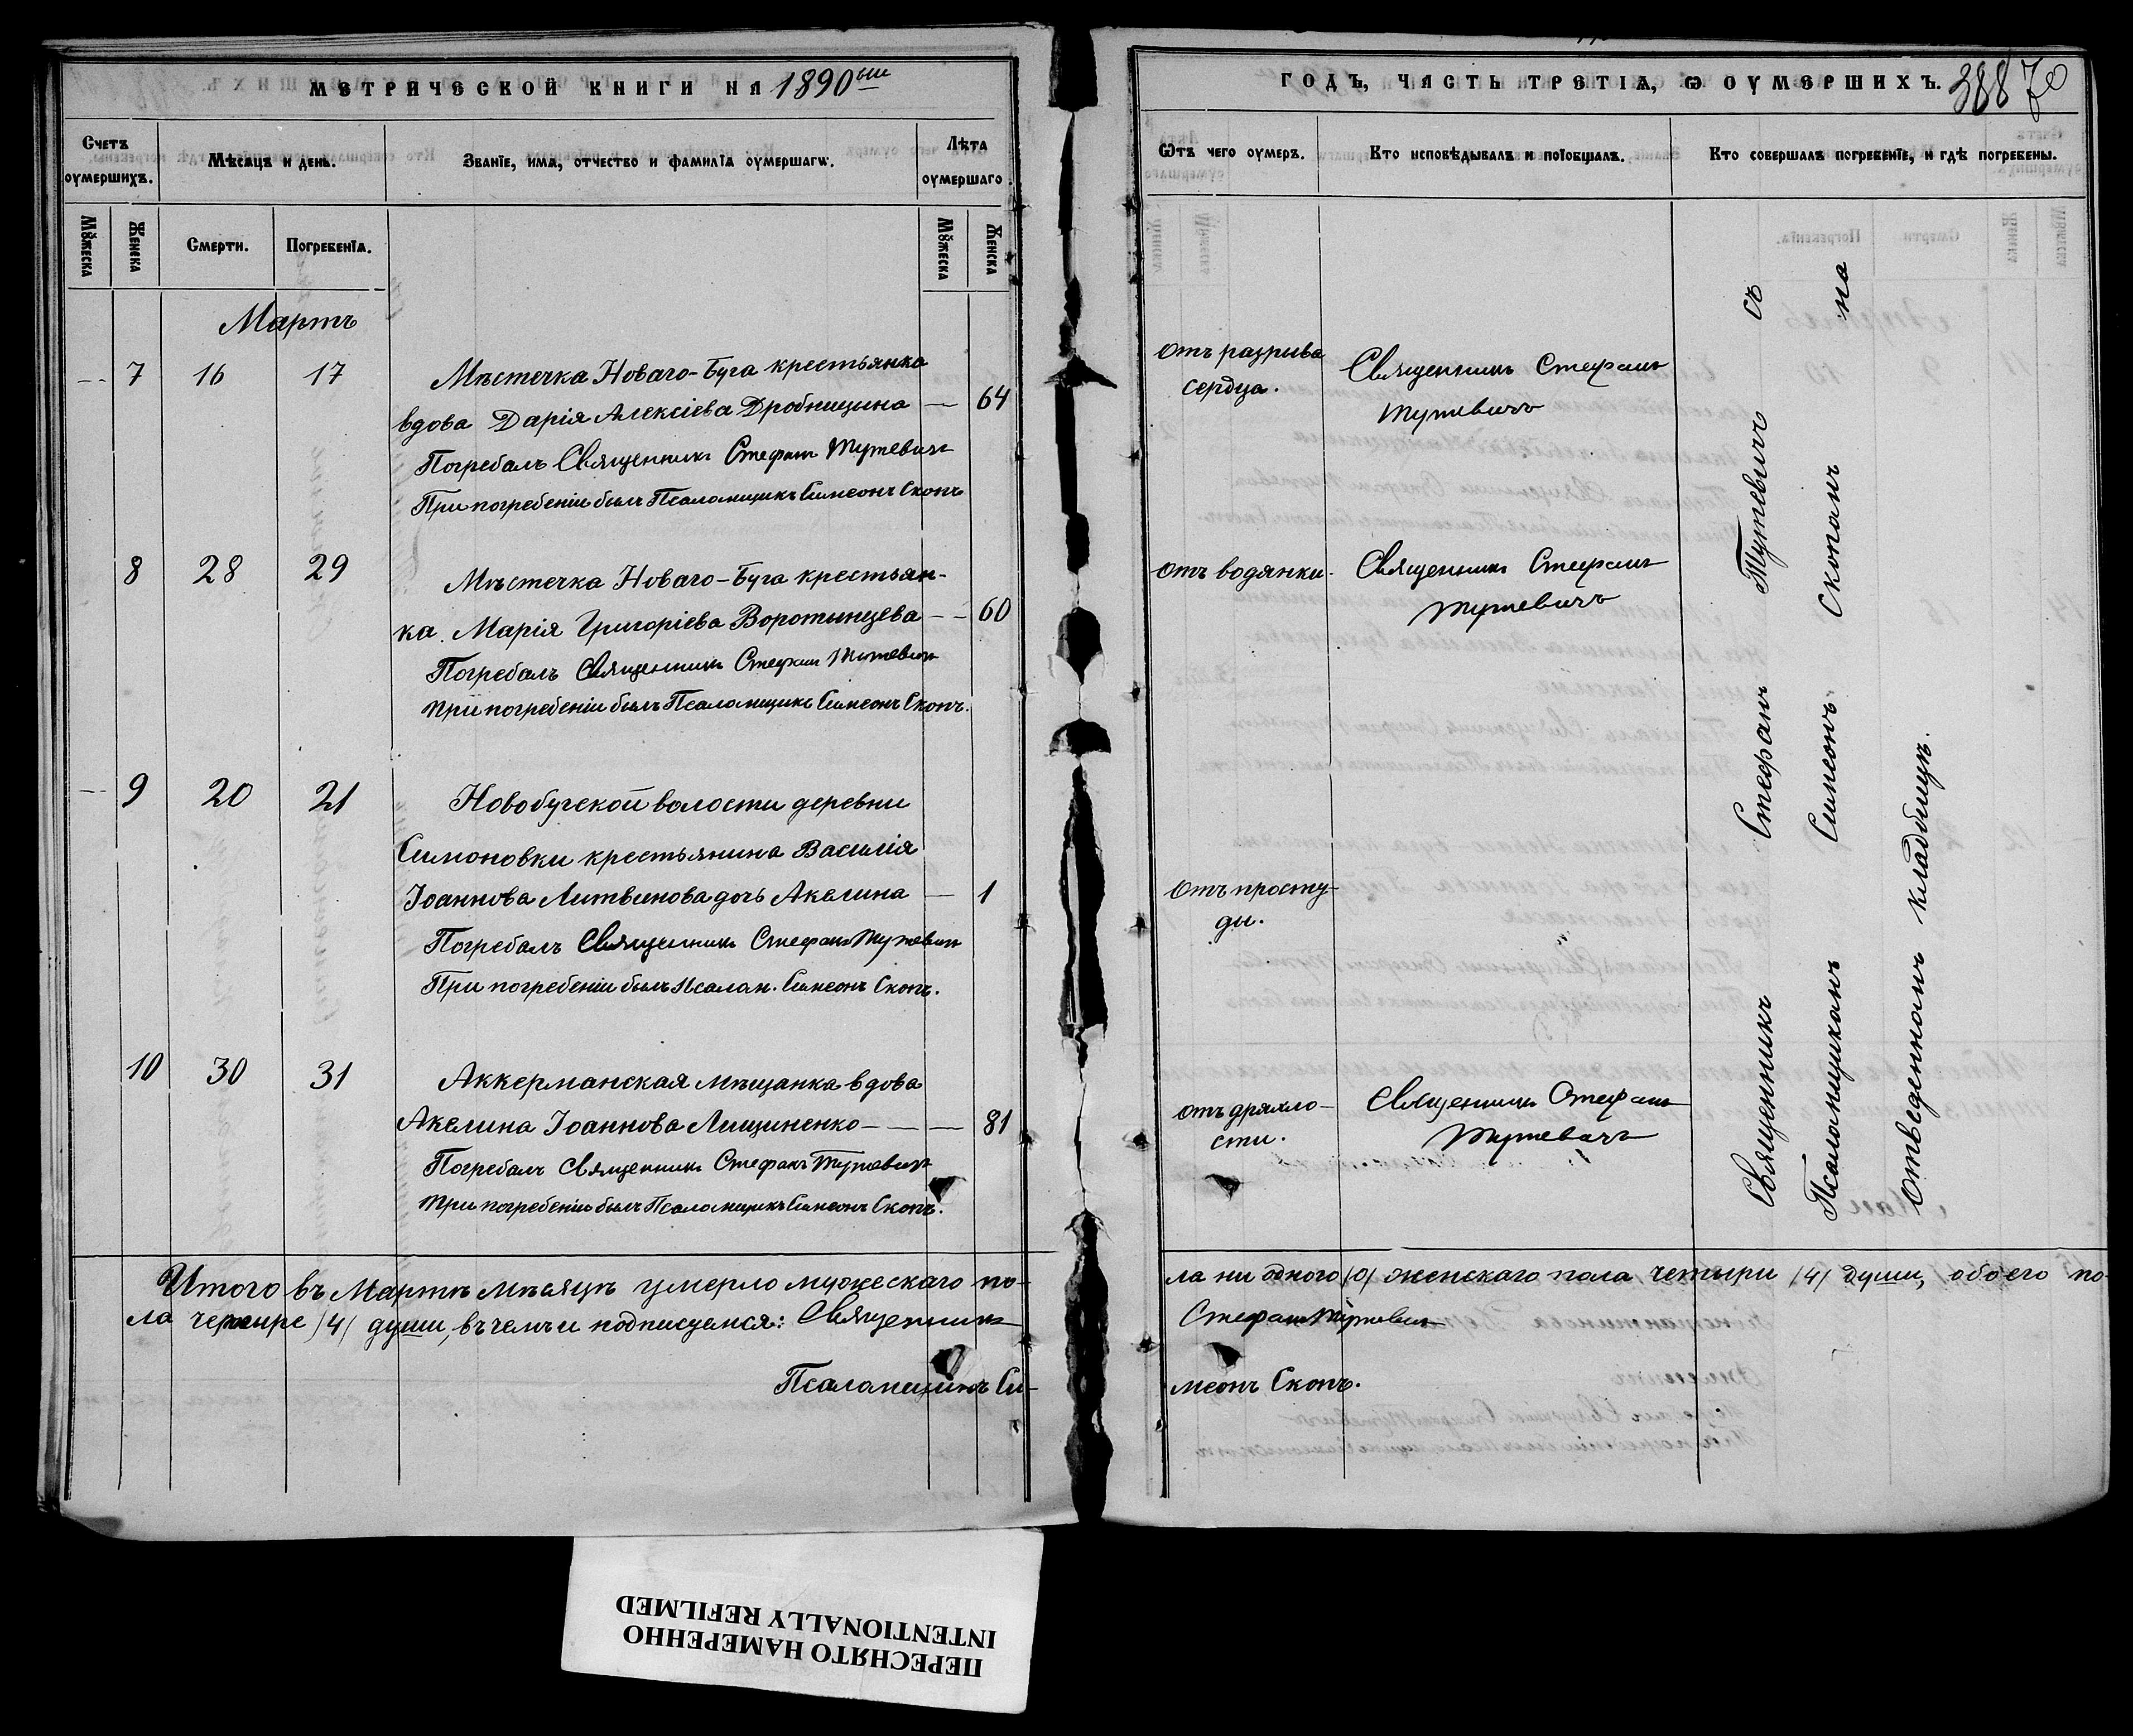 МЕТРИЧЕСКОЙ КНИГИ НА 1890ый
Счетъ оумершихъ.
Мѣсяцъ и день.
Званїе, имя, отчество и фамилїя оумершагω.
Лѣта оумершаго.
Мꙋжеска
Женска
Смерти.
Погребенїя.
Мꙋжеска
Женска
Мартъ
7 16 17 Мѣстечка Новаго-Буга крестьянка
вдова Дарія Алексіева Дробницына — 64
Погребалъ Священникъ Стефанъ Тутевичъ
При погребеніи былъ Псаломщикъ Симеонъ Скопъ
8 28 29 Мѣстечка Новаго-Буга крестьян-
ка Марія Григоріева Воротынцева — 60
Погребалъ Священникъ Стефанъ Тутевичъ
При погребеніи былъ Псаломщикъ Симеонъ Скопъ.
9 20 21 Новобугской волости деревни
Симоновки крестьянина Василія
Іоаннова Литвинова дочь Акелина — 1
Погребалъ Священникъ Стефанъ Тутевичъ
При погребеніи былъ Псалом. Симеонъ Скопъ.
10 30 31 Аккерманская мѣщанка вдова
Акелина Іоаннова Лищиненко — 81
Погребалъ Священникъ Стефанъ Тутевичъ
При погребеніи былъ Псаломщикъ Симеонъ Скопъ.
Итого въ Мартѣ мѣсяцѣ умерло мужескаго по-
ла четыре /4/ души, въ чемъ и подписуемся: Священникъ
Псаломщикъ Си-
ГОДЪ, ЧАСТЬ ТРЕТІѦ, Ѡ ОУМЕРШИХЪ. 388 70
Ѿтъ чего оумеръ.
Кто исповѣдывалъ и поїобщалъ.
Кто совершалъ погребенїе, и гдѣ погребены.
отъ разрыва
сердца.
Священникъ Стефанъ
Тутевичъ
отъ водянки.
Священникъ Стефанъ
Тутевичъ
отъ просту-
ды.
отъ дряхло-
сти.
Священникъ Стефанъ
Тутевичъ
Священникъ Стефанъ Тутевичъ съ
Псаломщикомъ Симеономъ Скопомъ на
отведенномъ кладбищѣ.
ла ни одного /0/ женскаго пола четыри /4/ души, обоего по-
Стефанъ Тутевичъ
меонъ Скопъ.
ПЕРЕСНЯТО НАМЕРЕННО
INTENTIONALLY REFILMED